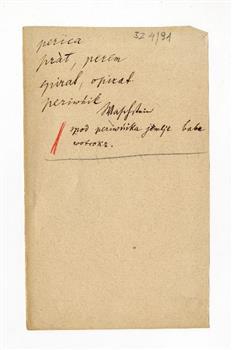 32 4/91
perica
pràt, perem
spirat, opirat
periwnik
Waschstein
pod periwnika jemlje baba
wotroke.